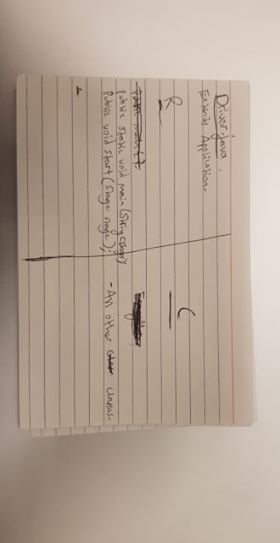 Driver.java.
Extends Application.
R
C
public static void main(String[]
public void start(Stage stage);
- All other classes.